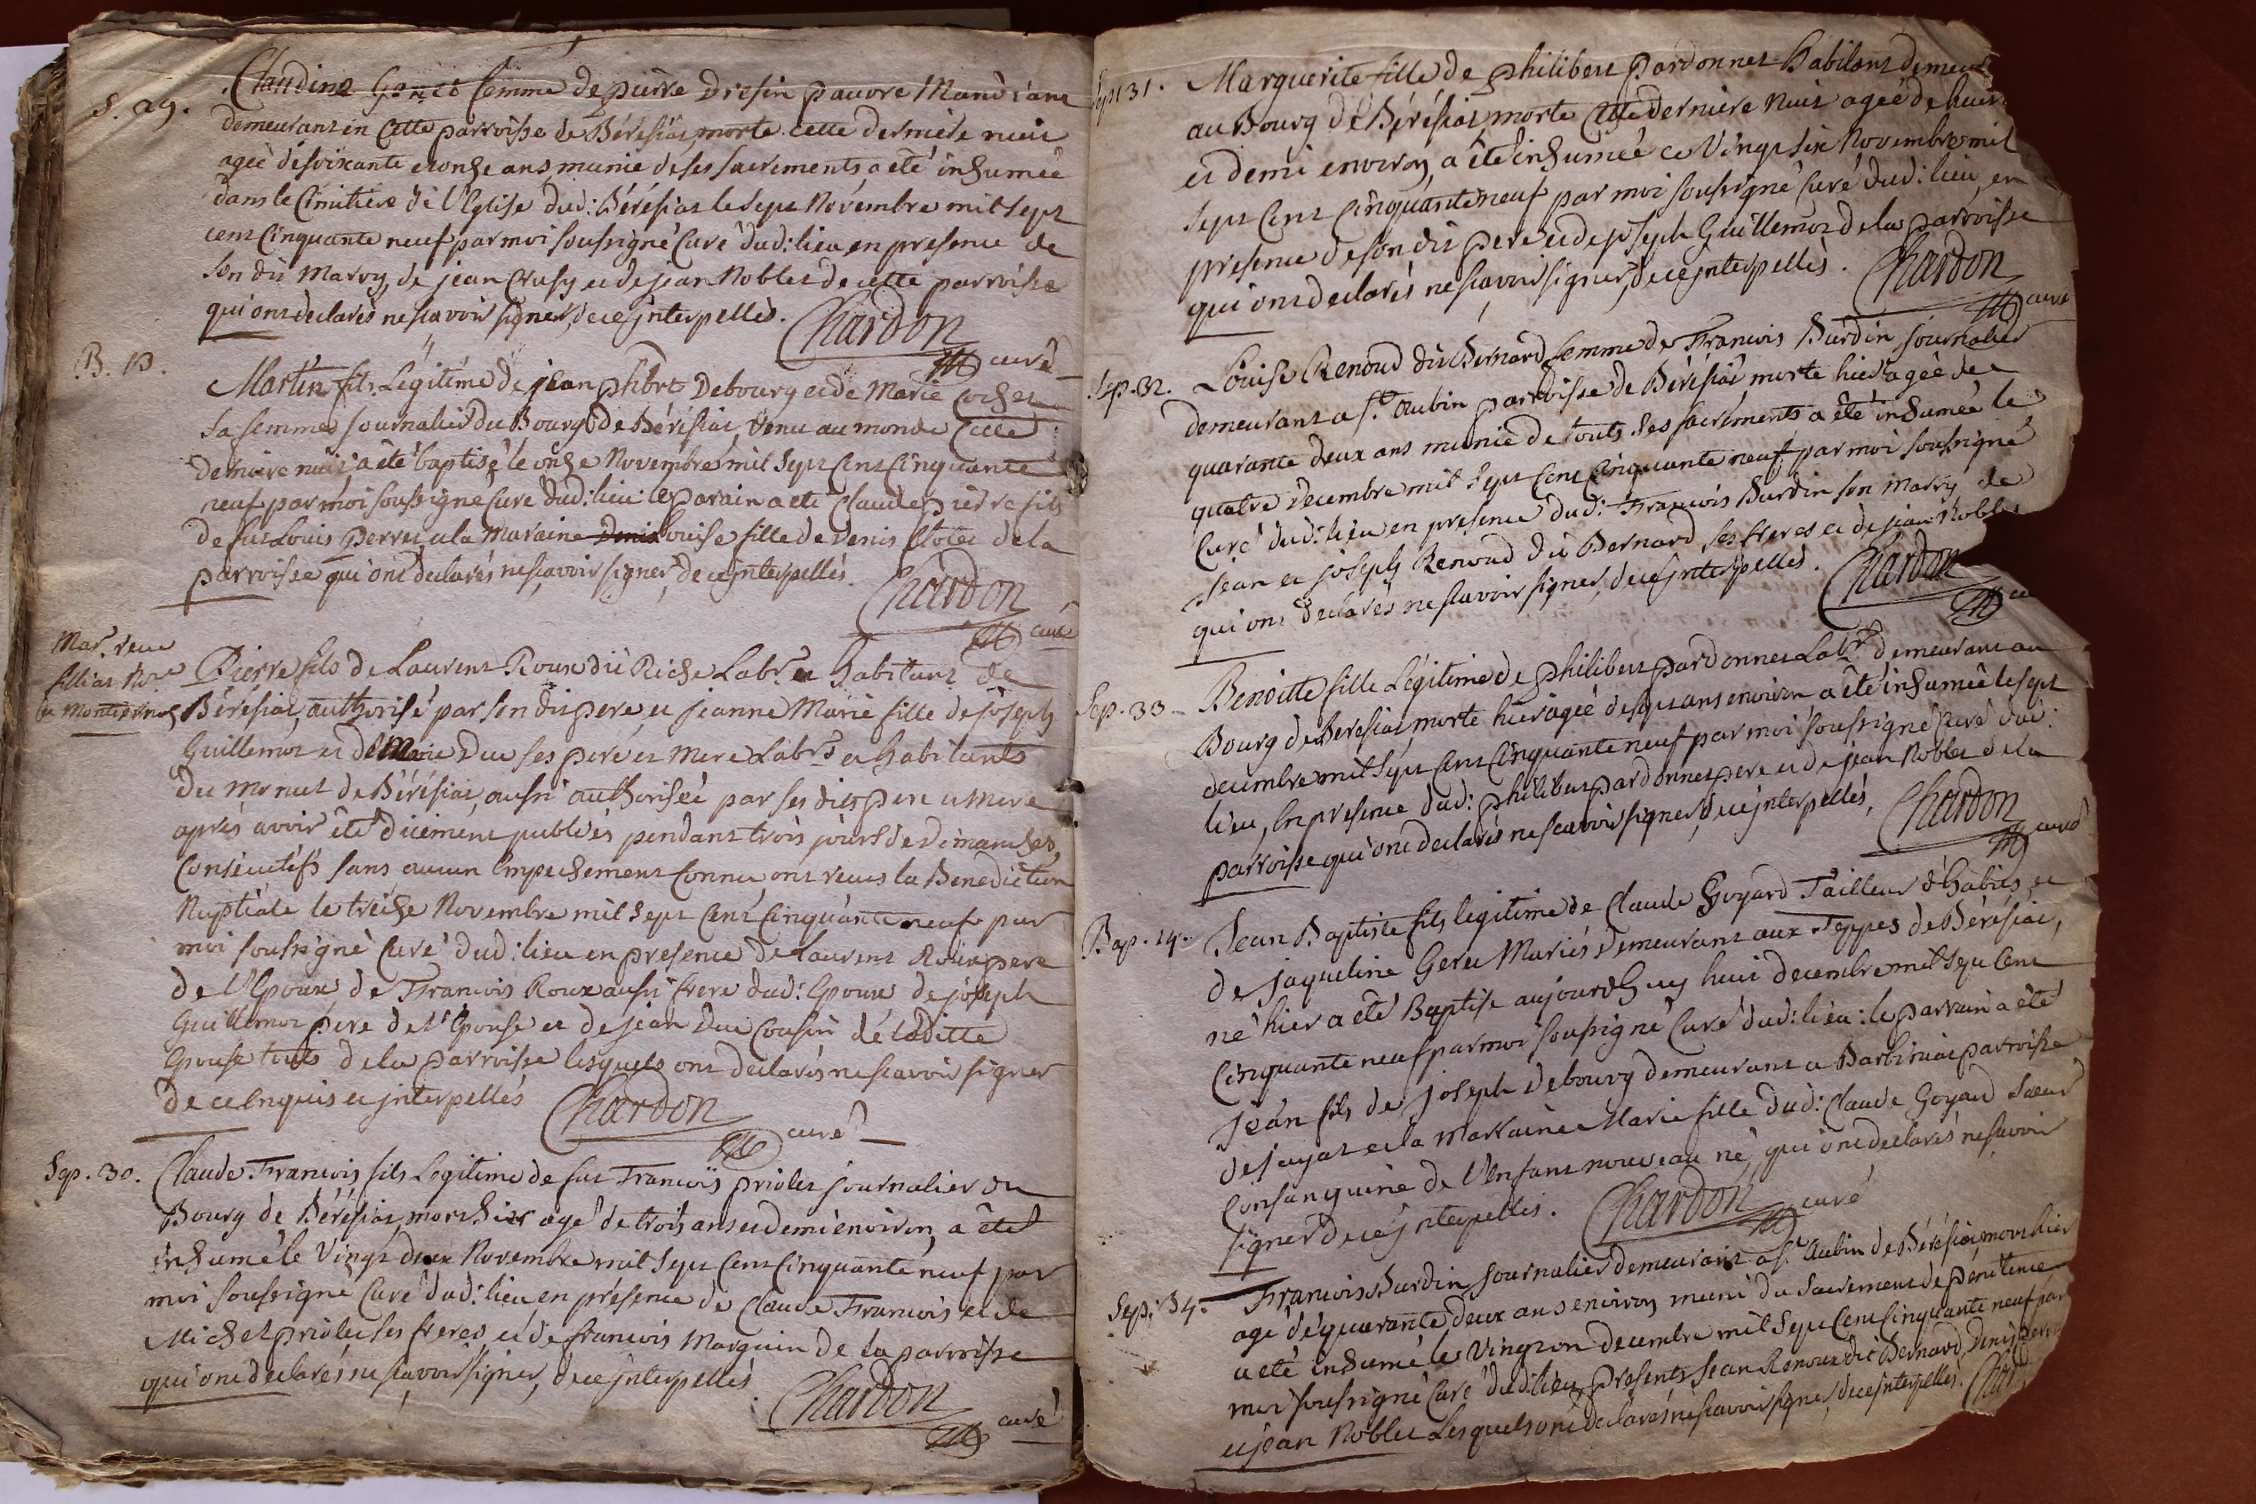 S. 29.
Claudine Gonet femme de pierre Dresin pauvre Mandiant
demeurant en Cette parroisse de Bérésiat, morte cette derniere nuit
ageè de soixante et onze ans munie de ses sacrements a été inhumeè
dans le Cimitiere de l'Eglise dud: Bérésiat le sept Novembre mil sept
cent Cinquante neuf par moi soussigné Curé dud: lieu en presence de
son dit Mary, de jean Crusy et de jean Noblet de cette parroisse
qui ont declarés ne scavoir signer, de ce jnterpellés.
Chardon
curé
B. 13.
Martin fils Légitime de jean phbrt Debourg et de Marie Cochet
sa femme journalier du Bourg de Bérésiat, venu au monde Cette
derniere nuit a été baptisé le onze Novembre mil sept Cent Cinquante
neuf par moi soussigné Curé dud: lieu: le parain a eté Claude pierre fils
de fut Louis Perret, et la Maraine Louise fille de Denis Clotet de la
parroisse qui ont declarés ne scavoir signer, de ce jnterpellés.
Chardon
curé
Mar.
filliat
Montepinos
Pierre fils de Laurent Roux dit Riche Labr. et habitant de
Bérésiat, authorisé par son dit pere et jeanne Marie fille de joseph
Guillemot et de Marie Duc ses pere et mere Labrs et habitants
du monet de Bérésiat, aussi authorisée par ses dits pere et mere
aprés avoir été düement publiés pendant trois jours de Dimanches
Consecutifs sans aucun Empechement Connu ont reçus la Benediction
Nuptiale le treize Novembre mil sept Cent Cinquante neuf par
moi soussigné Curé dud: lieu en presence de Laurent Roux pere
de l'Epoux, de Francois Roux aussi frere dud: Epoux de joseph
Guillemot pere de l'Epouse et de jean Duc Cousin de laditte
Epouse touts de la parroisse lesquels ont declarés ne scavoir signer
de ce Enquis et jnterpellés
Chardon
curé
Sep. 30.
Claude Francois fils Legitime de fut Francois priolet journalier du
Bourg de Bérésiat, mort hier agé de trois ans et demi environ, a été
inhumé le Vingt deux Novembre mil sept Cent Cinquante neuf par
moi soussigné Curé dud: lieu en présence de Claude Francois et de
Michel priolet ses freres et de francois Marguin de la parroisse
qui ont declarés ne scavoir signer, de ce jnterpellés
Chardon
curé
Sep. 31.
Marguerite fille de philibert pardonnet habitant
au Bourg de Bérésiat, morte Cette derniere nuit ageé de huit
et demi environ, a été inhumeé ce Vingt six Novembre mil
sept Cent Cinquante neuf par moi soussigné Curé dud: lieu, en
presence de son dit pere et de joseph Guillemot de la parroisse
qui ont declarés ne scavoir signer, de ce jnterpellés.
Chardon
curé
Sep. 32.
Louise Renoud dit Bernard femme de Francois Burdin journalier
demeurant a St. Aubin parroisse de Bérésiat morte hier ageé de
quarante deux ans munie de touts ses sacrements a été inhumeé le
quatre Decembre mil sept Cent Cinquante neuf par moi soussigné
Curé dud: lieu en presence dud: Francois Burdin son marry de
jean et joseph Renoud dit Bernard ses freres et de jean Noblet
qui ont declarés ne scavoir signer, de ce jnterpellés.
Chardon
Sep. 33.
Benoitte fille Légitime de philibert pardonnet Labr. demeurant au
Bourg de Beresiat morte hier ageé de sept ans environ a été inhumeé le sept
decembre mil sept Cent Cinquante neuf par moi soussigné Curé dud:
lieu, En presence dud: philibert pardonnet pere et de jean Noblet de la
parroisse qui ont declarés ne scavoir signer, de ce jnterpellés,
Chardon
curé
Bap. 14.
Jean Baptiste fils legitime de Claude Goyard Tailleur d'habits et
de jaqueline Geret Mariés demeurant aux Teppes de Bérésiat,
né hier a été Baptisé aujourdhuy huit decembre mil sept Cent
Cinquante neuf par moi soussigné Curé dud: lieu: le parrain a été
jean fils de joseph debourg demeurant a Barbiniat parroisse
de jayat et la marraine Marie fille dud: Claude Goyard soeur
Consanguine de l'Enfant nouveau né, qui ont declarés ne scavoir
signer de ce jnterpellés.
Chardon
curé
Sep. 34.
Francois Burdin journalier demeurant a St. Aubin de Bérésiat, mort hier
agé de quarante deux ans environ muni du sacrement de penitence
a eté inhumé le Vingt un decembre mil sept Cent Cinquante neuf par
moi soussigné Curé dud: lieu, presents jean Renoux dit Bernard, Denis
et jean Noblet Lesquels ont declarés ne scavoir signer, de ce jnterpellés.